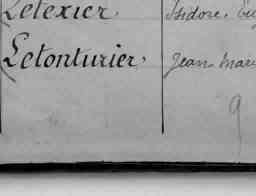 Letexier. Isidore, Eug
Letonturier. Jean Marie
9